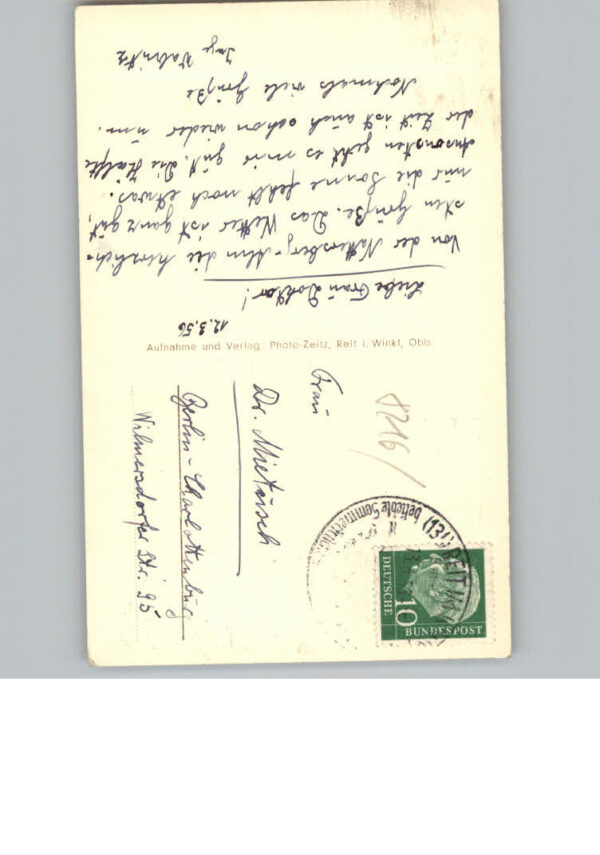 12.3.56
Liebe Frau Doktor!
Von der Nattersberg-Alm die herzlich-
sten Grüße. Das Wetter ist ganz gut,
nur die Sonne fehlt noch etwas.
Ansonsten geht es mir gut. Die Hälfte
der Zeit ist auch schon wieder um.
Nochmals viele Grüße
Inge
Aufnahme und Verlag: Photo-Zeitz, Reit i. Winkl, Obb.
8216/
Frau
Dr. Mietzsch
Berlin-Charlottenburg
Wilmersdorfer Str. 95
(13b) REIT IM
beliebte Sommerfrische
DEUTSCHE
BUNDESPOST
10